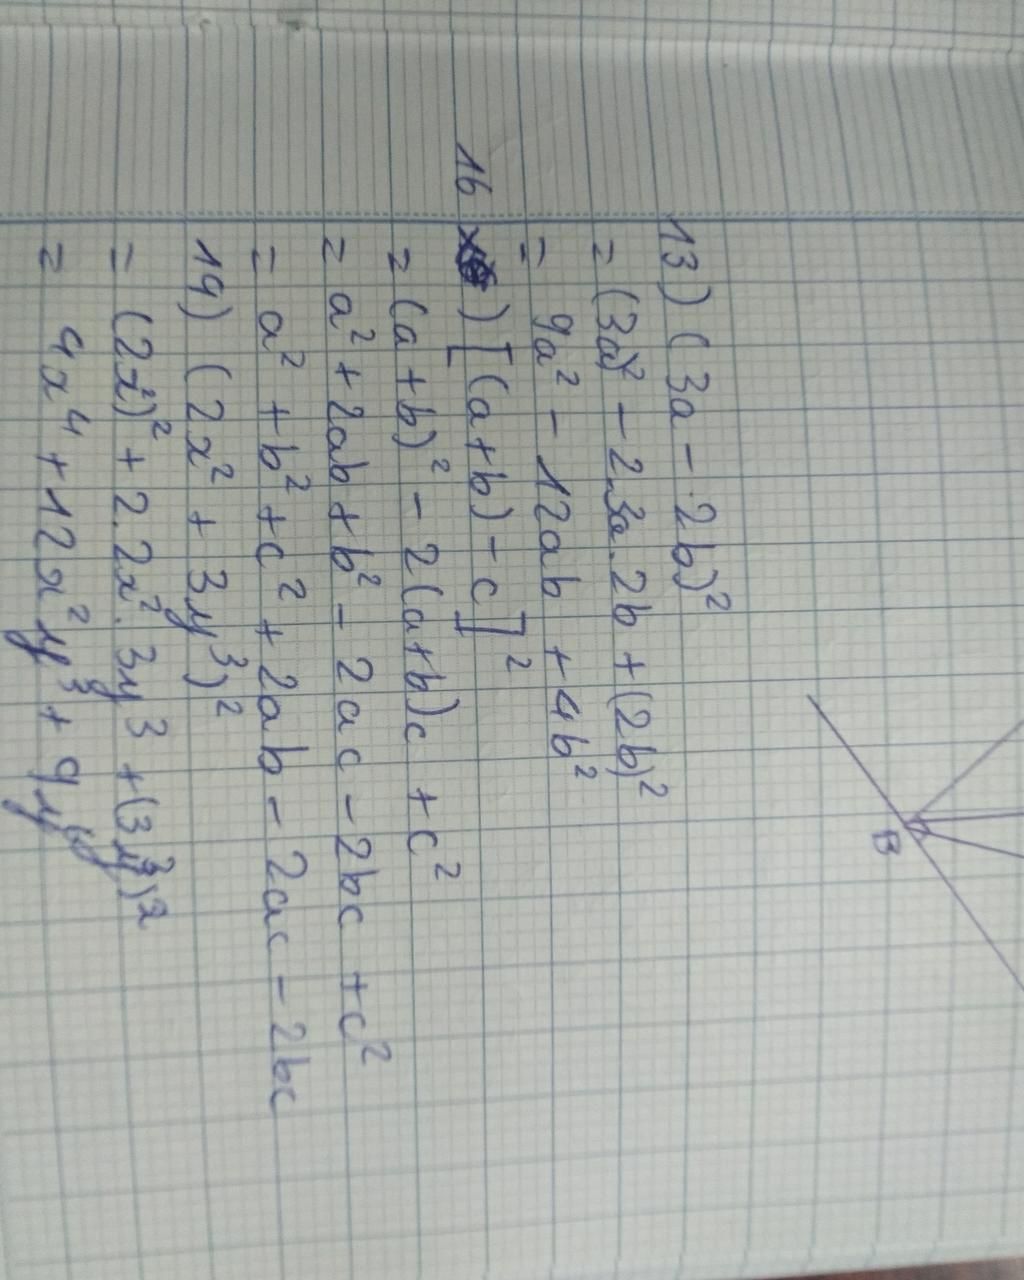 B
13) (3a - 2b)²
= (3a)² - 2.3a.2b + (2b)²
= 9a² - 12ab + 4b²
16 ) [(a+b) - c]²
= (a+b)² - 2(a+b)c + c²
= a² + 2ab + b² - 2ac - 2bc + c²
= a² + b² + c² + 2ab - 2ac - 2bc
19) (2x² + 3y³)²
= (2x²)² + 2.2x².3y³ + (3y³)²
= 4x⁴ + 12x²y³ + 9y⁶